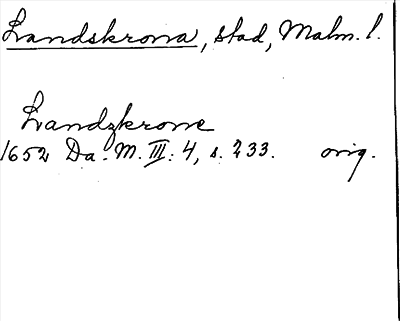 Landskrona, stad, Malm. l.
Landzkrone
1652 Da. M. III: 4, s. 233. orig.